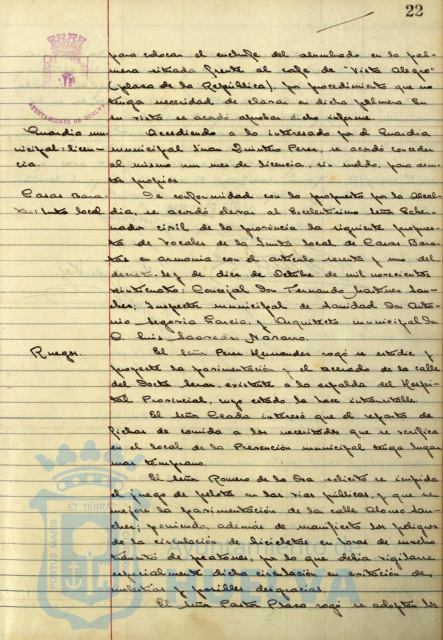 22
AYUNTAMIENTO DE HUELVA
para colocar el enchufe del alumbrado en la pal-
mera situada frente al café de "Vista Alegre"
(plaza de la República), por procedimiento que no
tenga necesidad de clavar en dicha palmera. En
su vista se acordó aprobar dicho informe.
Guardia mu-
nicipal: licen-
cia.
Accediendo a lo interesado por el Guardia
municipal Juan Quintero Perez, se acordó conceder
al mismo un mes de licencia, sin sueldo, para asun-
tos propios.
Casas Bara-
tas: Junta local
De conformidad con lo propuesto por la Alcal-
día, se acordó elevar al Excelentísimo señor Gober-
nador civil de la provincia la siguiente propues-
ta de vocales de la Junta local de Casas Bara-
tas en armonía con el artículo sesenta y uno del
decreto-ley de diez de Octubre de mil novecientos
veinticuatro: Concejal Don Fernando Martinez San-
chez; Inspector municipal de Sanidad Don Anto-
nio Segovia Garcia, y Arquitecto municipal Don
Luis Saavedra Navarro.
Ruegos.
El señor Perez Hernandez rogó se estudie y
proyecte la pavimentación y el acerado de la calle
del Doctor Seras, existente a la espalda del Hospi-
tal Provincial, cuyo estado la hace intransitable.
El señor Terada interesó que el reparto de
fichas de comida a los necesitados que se verifica
en el local de la Prevención municipal tenga lugar
mas temprano.
El señor Romero de la Osa solicitó se impida
el juego de pelota en las vías públicas, y que se
mejore la pavimentación de la calle Alonso San-
chez; poniendo, además de manifiesto los peligros
de la circulación de bicicletas en horas de mucho
tránsito de peatones, por lo que debía vigilarse
especialmente dicha circulación en evitación de
molestias y posibles desgracias.
El señor Pastor rogó se adopten las
PORTUS MARIS
ET TERRAE
HUELVA